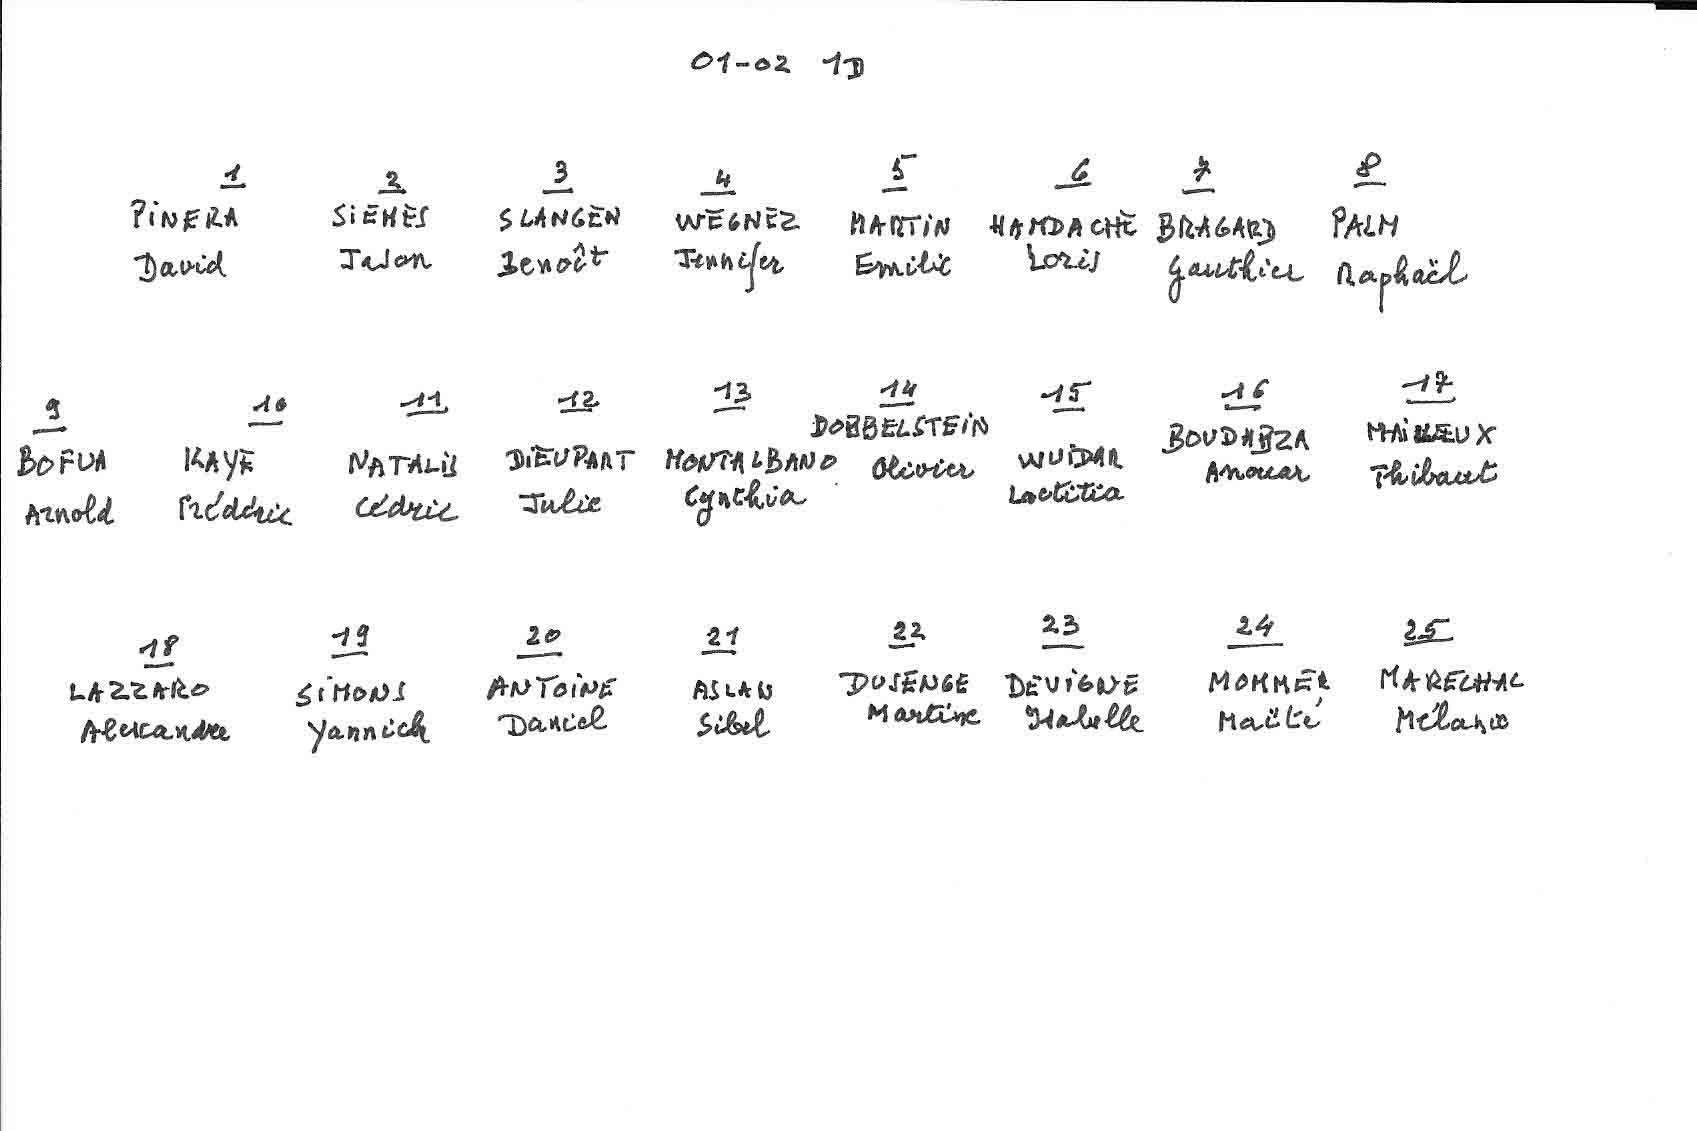 01-02 1D
1 2 3 4 5 6 7 8
PINERA SIEMES SLANGEN WEGNEZ MARTIN HAMDACHE BRAGARD PALM
David Jason Benoît Jennifer Emilie Loris Gauthier Raphaël
9 10 11 12 13 14 15 16 17
DOBBELSTEIN
BOFUA KAYE NATALIS DIEUPART MONTALBANO Olivier WUIDAR BOUDABZA MAILLEUX
Arnold Frédéric Cédric Julie Cynthia Laetitia Anouar Thibaut
18 19 20 21 22 23 24 25
LAZZARO SIMONS ANTOINE ASLAN DUSENGE DEVIGNE MOMMER MARECHAL
Alexandre Yannick Daniel Sibel Martine Isabelle Maïté Mélanie